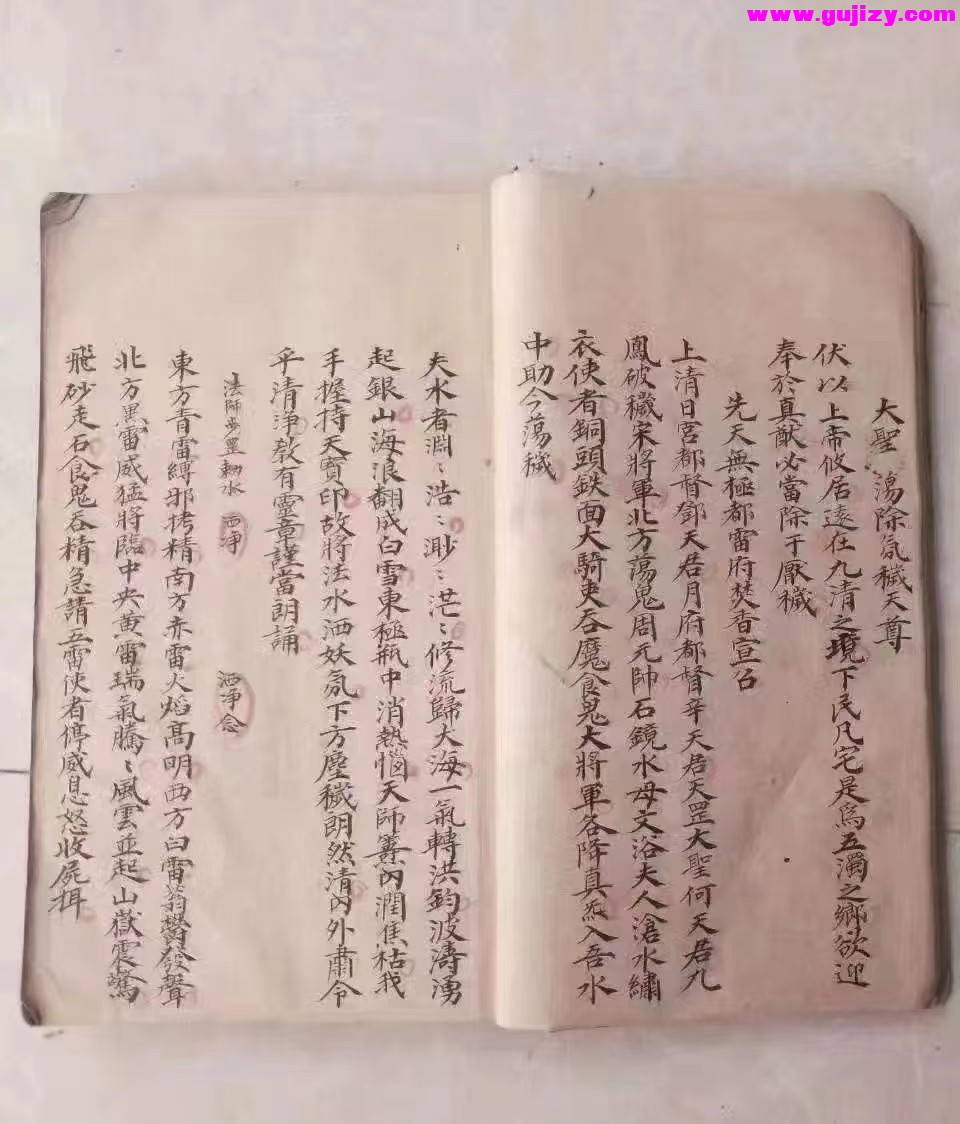 www.gujizy.com
大聖 蕩除氛穢天尊
伏以上帝攸居遠在九清之境下民凡宅是爲五濁之鄉欲迎
奉於真猷必當除于厭穢
先天無極都雷府焚香宣召
上清日宮都督鄧天君月府都督辛天君天罡大聖何天君九
鳳破穢宋將軍北方蕩鬼周元帥石鏡水母文浴夫人滄水繡
衣使者銅頭鉄面大騎吏吞魔食鬼大將軍各降真炁入吾水
中助令蕩穢
夫水者淵〻浩〻渺〻茫〻修流歸大海一氣轉洪鈞波濤湧
起銀山海浪翻成白雪東極瓶中消熱惱天師籙內潤焦枯我
手握持天寶印故將法水洒妖氛下方塵穢朗然清內外肅令
乎清淨教有靈章謹當朗誦
法師步罡勅水 洒淨 洒淨念
東方青雷縛邪拷精南方赤雷火焰高明西方白雷蓊欝發聲
北方黑雷威猛將臨中央黄雷瑞氣騰〻風雲並起山嶽震驚
飛砂走石食鬼吞精急請五雷使者停威息怒收屍